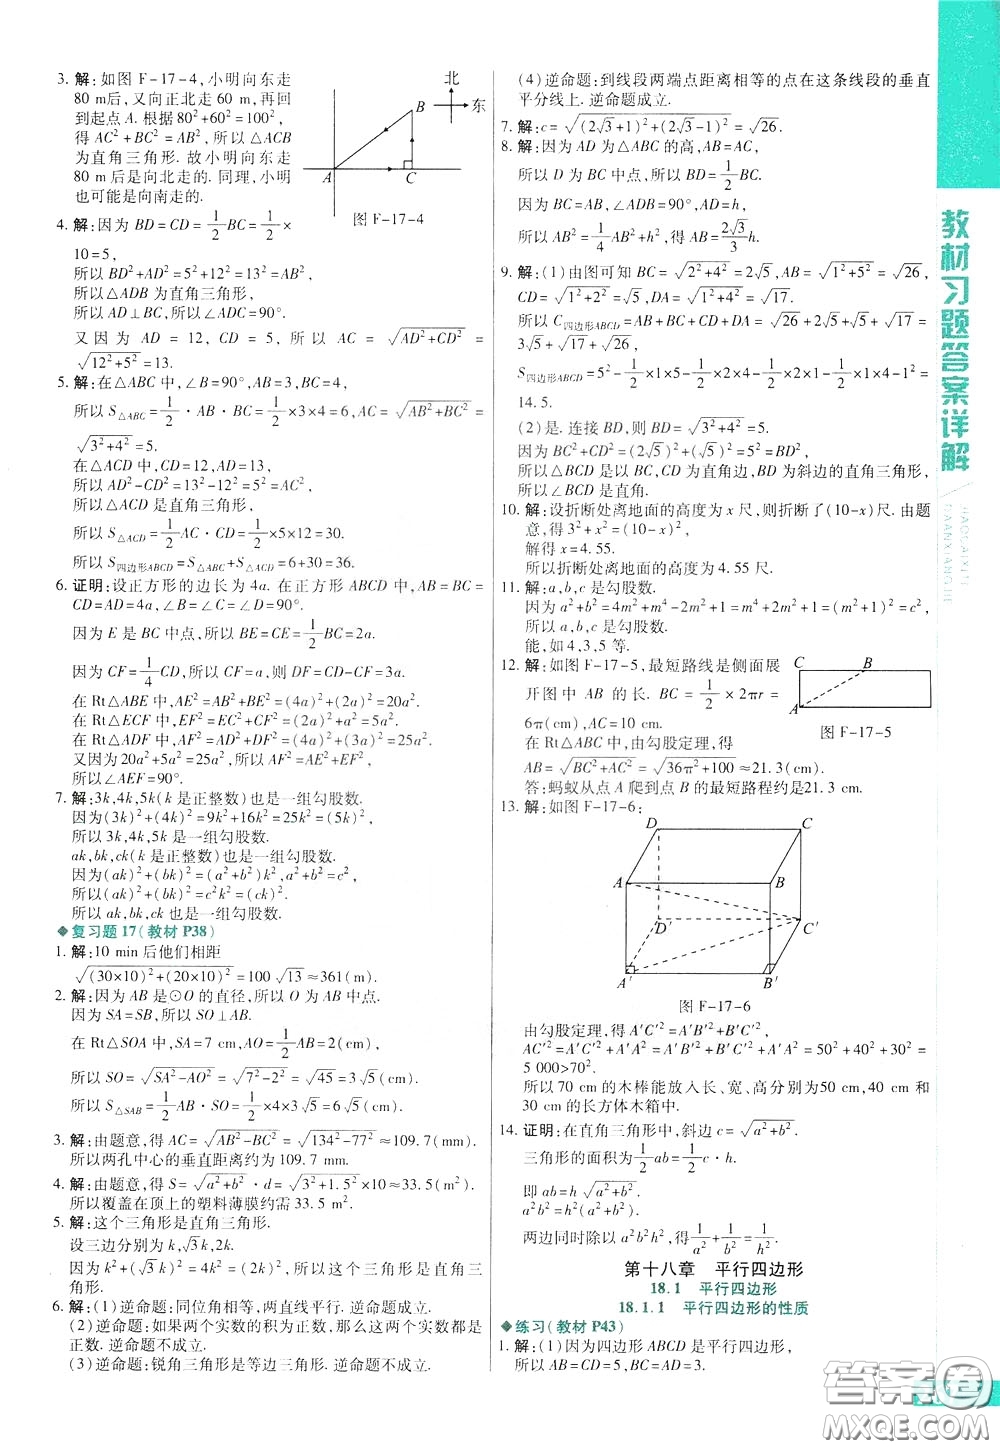 3. 解:如图 F-17-4,小明向东走
80 m后,又向正北走 60 m,再回
到起点 A. 根据80²+60²=100²,
得 AC²+BC²=AB²,所以△ACB
为直角三角形. 故小明向东走
80 m后是向北走的. 同理,小明
也可能是向南走的.
北
东
B
A
C
图 F-17-4
4. 解:因为 BD=CD=1/2BC=1/2×
10=5,
所以 BD²+AD²=5²+12²=13²=AB²,
所以△ADB 为直角三角形,
所以 AD⊥BC,所以∠ADC=90°.
又因为 AD=12, CD=5, 所以 AC=√(AD²+CD²)=
√(12²+5²)=13.
5. 解:在△ABC 中,∠B=90°,AB=3,BC=4,
所以 S△ABC=1/2·AB·BC=1/2×3×4=6,AC=√(AB²+BC²)=
√(3²+4²)=5.
在△ACD 中,CD=12,AD=13,
所以 AD²-CD²=13²-12²=5²=AC²,
所以△ACD 是直角三角形,
所以 S△ACD=1/2AC·CD=1/2×5×12=30.
所以 S四边形ABCD=S△ABC+S△ACD=6+30=36.
6. 证明:设正方形的边长为 4a. 在正方形 ABCD 中,AB=BC=
CD=AD=4a,∠B=∠C=∠D=90°.
因为 E 是 BC 中点,所以 BE=CE=1/2BC=2a.
因为 CF=1/4CD,所以 CF=a,则 DF=CD-CF=3a.
在 Rt△ABE 中,AE²=AB²+BE²=(4a)²+(2a)²=20a².
在 Rt△ECF 中,EF²=EC²+CF²=(2a)²+a²=5a².
在 Rt△ADF 中,AF²=AD²+DF²=(4a)²+(3a)²=25a².
又因为20a²+5a²=25a²,所以 AF²=AE²+EF²,
所以∠AEF=90°.
7. 解:3k,4k,5k(k 是正整数)也是一组勾股数.
因为(3k)²+(4k)²=9k²+16k²=25k²=(5k)²,
所以 3k,4k,5k 是一组勾股数.
ak,bk,ck(k 是正整数)也是一组勾股数.
因为(ak)²+(bk)²=(a²+b²)k²,a²+b²=c².
所以(ak)²+(bk)²=c²k²=(ck)²,
所以 ak,bk,ck 也是一组勾股数.
◆复习题 17(教材 P38)
1. 解:10 min后他们相距
√((30×10)²+(20×10)²)=100√13≈361(m).
2. 解:因为 AB 是⊙O 的直径,所以 O 为 AB 中点.
因为 SA=SB,所以 SO⊥AB.
在 Rt△SOA 中,SA=7 cm,AO=1/2AB=2(cm),
所以 SO=√(SA²-AO²)=√(7²-2²)=√45=3√5(cm).
所以 S△SAB=1/2×4×3√5=6√5(cm²).
3. 解:由题意,得 AC=√(AB²-BC²)=√(134²-77²)≈109.7(mm).
所以两孔中心的垂直距离约为 109.7 mm.
4. 解:由题意,得 S=√(a²+b²)·d=√(3²+1.5²)×10≈33.5(m²).
所以覆盖在顶上的塑料薄膜约需 33.5 m².
5. 解:这个三角形是直角三角形.
设三边分别为 k,√3k,2k.
因为 k²+(√3k)²=4k²=(2k)²,所以这个三角形是直角三角形.
6. 解:(1)逆命题:同位角相等,两直线平行. 逆命题成立.
(2)逆命题:如果两个实数的积为正数,那么这两个实数是
正数. 逆命题不成立.
(3)逆命题:锐角三角形是等边三角形. 逆命题不成立.
(4)逆命题:到线段两端点距离相等的点在这条线段的垂直
平分线上. 逆命题成立.
7. 解:c=√((2√3+1)²+(2√3-1)²)=√26.
8. 解:因为 AD 为△ABC 的高,AB=AC,
所以 D 为 BC 中点,所以 BD=1/2BC.
因为 BC=AB,∠ADB=90°,AD=h,
所以 AB²=1/4AB²+h²,得 AB=2√3/3h.
9. 解:(1)由图可知 BC=√(2²+4²)=2√5,AB=√(1²+5²)=√26,
CD=√(1²+2²)=√5,DA=√(1²+4²)=√17.
所以 C四边形ABCD=AB+BC+CD+DA=√26+2√5+√5+√17=
3√5+√26+√17.
S四边形ABCD=5²-1/2×1×5-1/2×2×4-1/2×2×1-1/2×1×4-1²=
14.5.
(2)是. 连接 BD,则 BD=√(3²+4²)=5.
因为 BC²+CD²=(2√5)²+(√5)²=5²=BD²,
所以△BCD 是以 BC,CD 为直角边,BD 为斜边的直角三角形,
所以∠BCD 是直角.
10. 解:设折断处离地面的高度为 x 尺,则折断了(10-x)尺. 由题
意,得 3²+x²=(10-x)².
解得 x=4.55.
所以折断处离地面的高度为 4.55 尺.
11. 解:a,b,c 是勾股数.
因为 a²+b²=4m²+m⁴-2m²+1=m⁴+2m²+1=(m²+1)²=c²,
所以 a,b,c 是勾股数.
能,如 4,3,5 等.
12. 解:如图 F-17-5,最短路线是侧面展
开图中 AB 的长. BC=1/2×2πr=
6π(cm),AC=10 cm.
在 Rt△ABC 中,由勾股定理,得
AB=√(BC²+AC²)=√(36π²+100)≈21.3(cm).
答:蚂蚁从点 A 爬到点 B 的最短路程约是21.3 cm.
C
B
A
图 F-17-5
13. 解:如图 F-17-6:
D
C
A
B
D′
C′
A′
B′
图 F-17-6
由勾股定理,得 A′C′²=A′B′²+B′C′²,
AC′²=AA′²+A′C′²=AA′²+A′B′²+B′C′²=50²+40²+30²=
5 000>70².
所以 70 cm 的木棒能放入长、宽、高分别为50 cm,40 cm 和
30 cm 的长方体木箱中.
14. 证明:在直角三角形中,斜边 c=√(a²+b²).
三角形的面积为1/2ab=1/2c·h.
即 ab=h√(a²+b²).
a²b²=h²(a²+b²).
两边同时除以 a²b²h²,得1/a²+1/b²=1/h².
第十八章 平行四边形
18.1 平行四边形
18.1.1 平行四边形的性质
◆练习(教材 P43)
1. 解:(1)因为四边形 ABCD 是平行四边形,
所以 AB=CD=5,BC=AD=3.
教材习题答案详解
答案圈
MXQE.COM